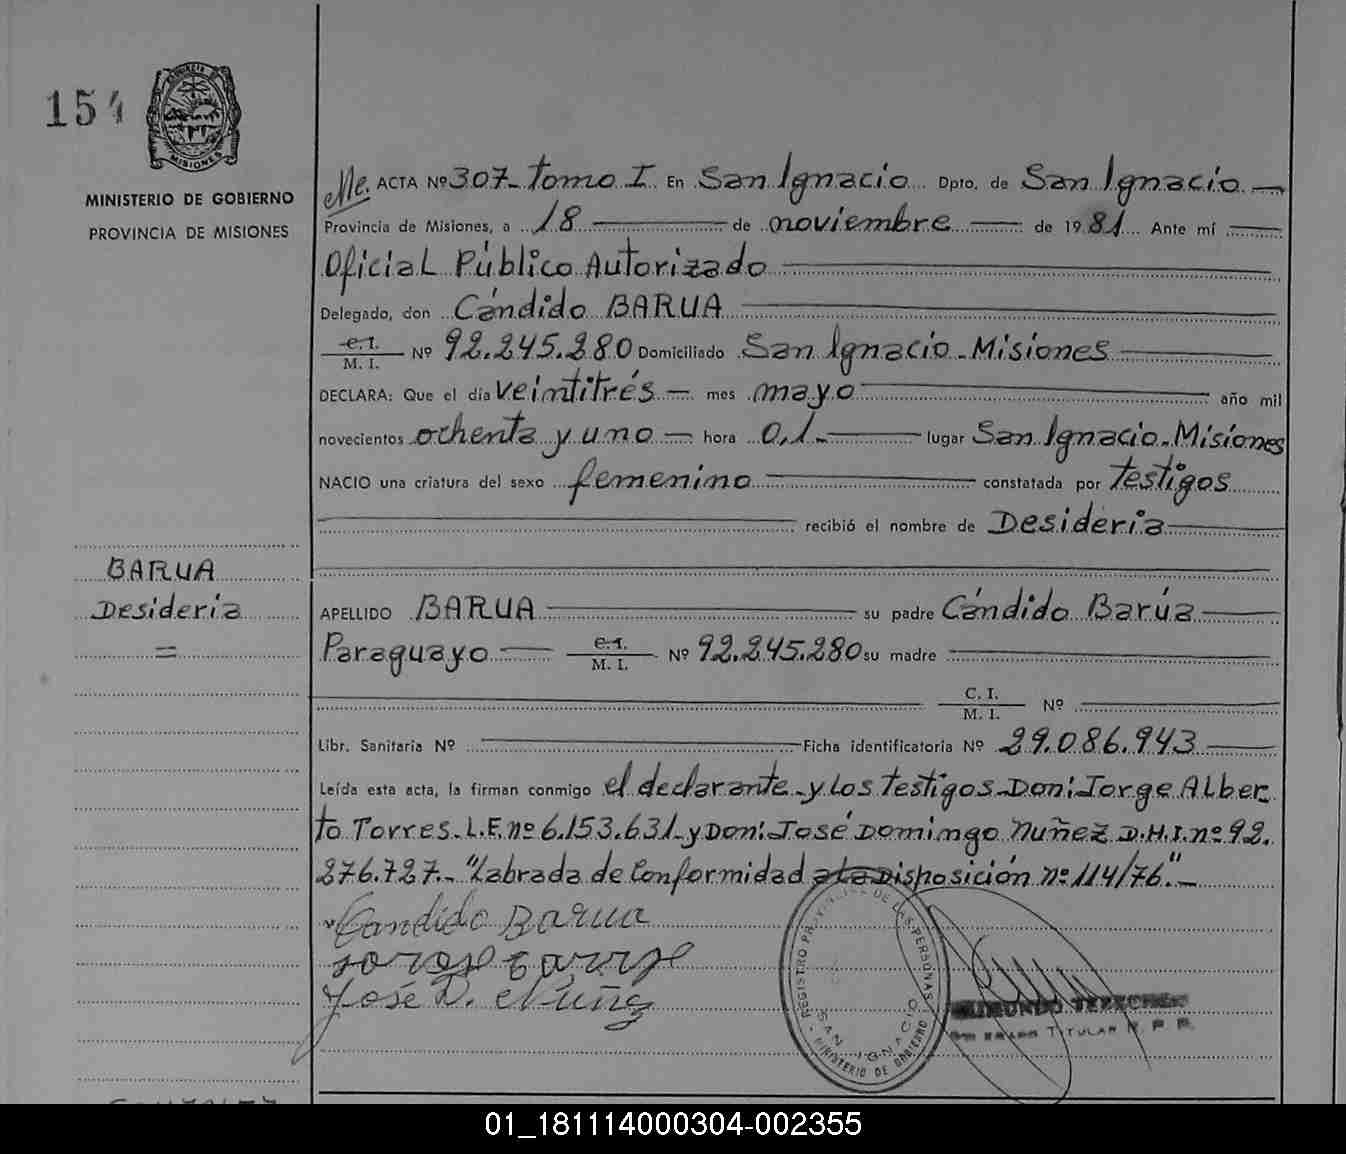 154
PROVINCIA DE
MISIONES
MINISTERIO DE GOBIERNO
PROVINCIA DE MISIONES
ACTA Nº 307- tomo I. En San Ignacio Dpto. de San Ignacio
Provincia de Misiones, a 18 de noviembre de 1981 Ante mí
Oficial Público Autorizado
Delegado, don Cándido BARUA
C.I. M. I. Nº 92.245.280 Domiciliado San Ignacio - Misiones
DECLARA: Que el día veintitrés mes mayo año mil
novecientos ochenta y uno hora 0,1. lugar San Ignacio - Misiones
NACIO una criatura del sexo femenino constatada por testigos
recibió el nombre de Desideria
BARUA
Desideria
=
APELLIDO BARUA su padre Cándido Barúa
Paraguayo C.I. M. I. Nº 92.245.280 su madre
C. I. M. I. Nº
Libr. Sanitaria Nº Ficha identificatoria Nº 29.086.943
Leída esta acta, la firman conmigo el declarante y los testigos Don: Jorge Alber
to Torres - L.E. nº 6.153.631 - y Don: José Domingo Nuñez D.N.I. nº 92.
276.727.- "Labrada de Conformidad a la Disposición nº 114/76."-
Candido Barua
José D. Nuñez
REGISTRO PROVINCIAL DE LAS PERSONAS
SAN IGNACIO
MINISTERIO DE GOBIERNO
TITULAR R. P. P.
01_181114000304-002355